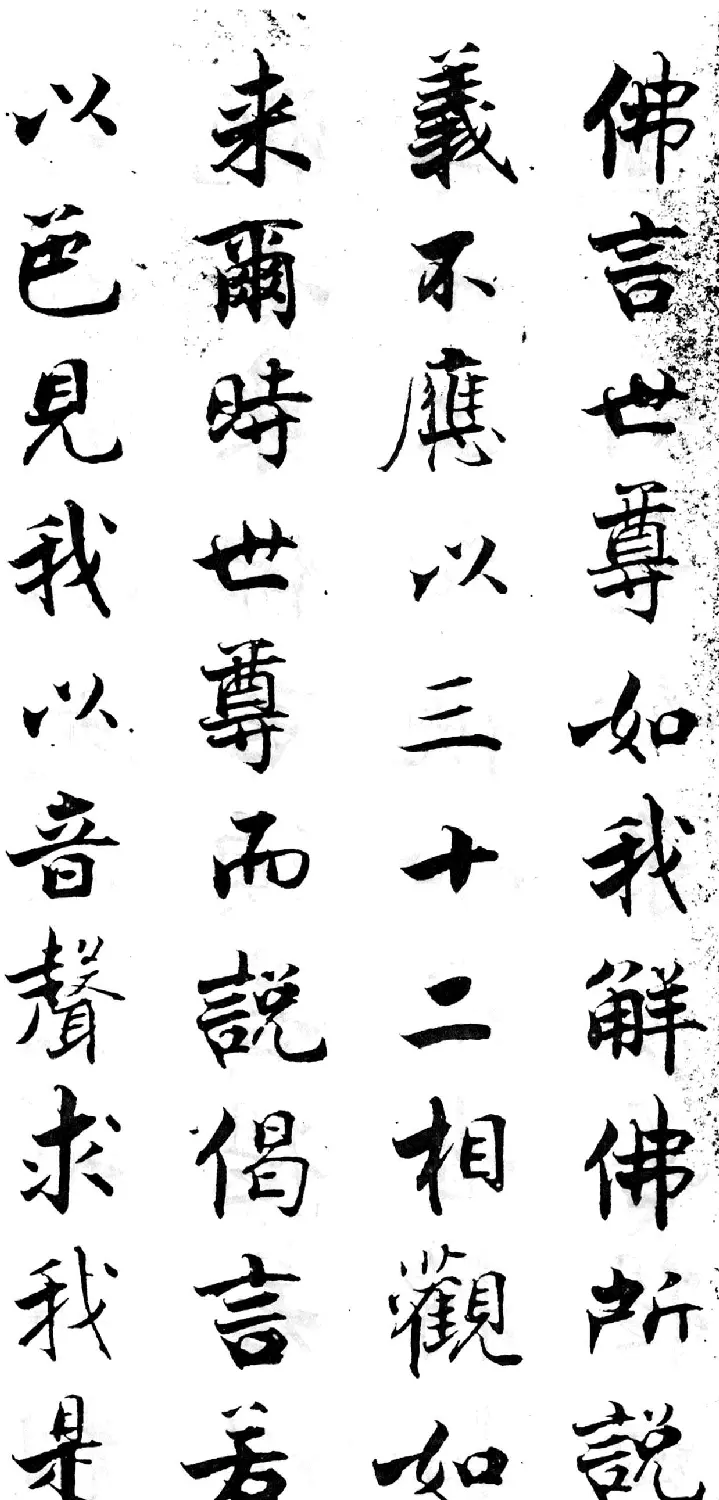 佛言世尊如我解佛所説
義不應以三十二相觀如
来爾時世尊而説偈言若
以色見我以音聲求我是